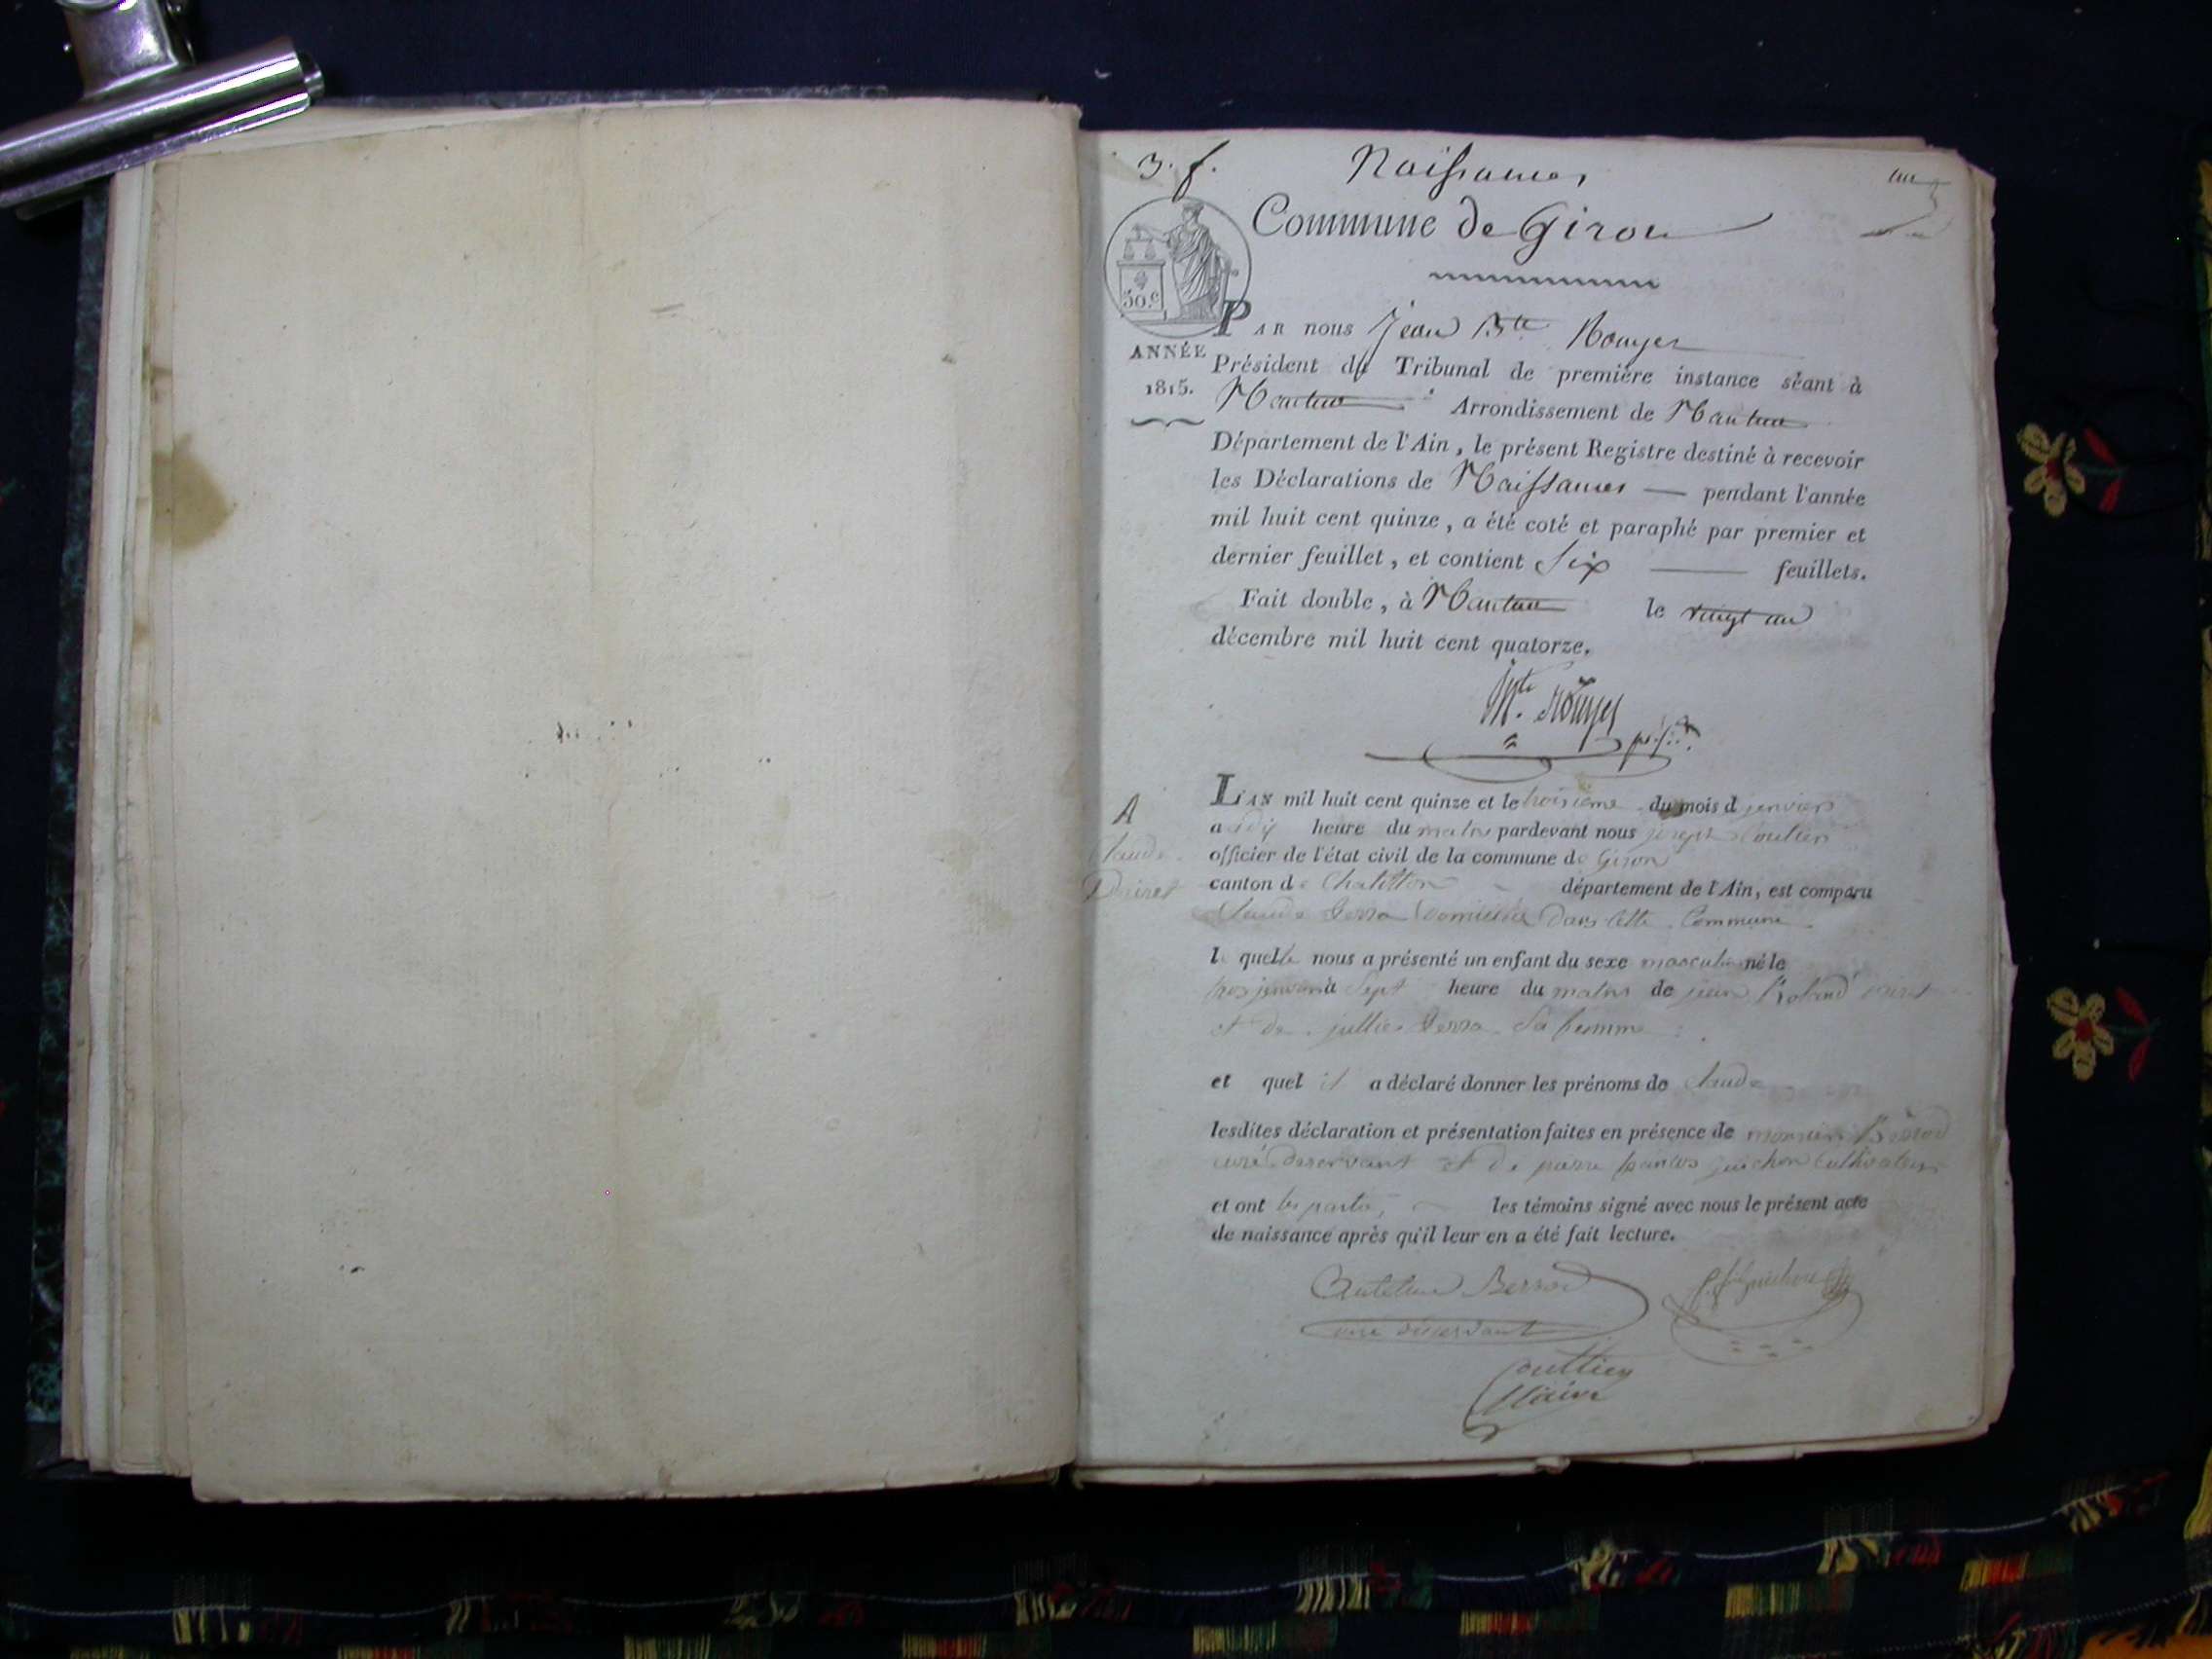 3. f.
Naissances
un
Commune de Giron
50.c
Par nous Jean Bte Rouyer
ANNÉE
1815.
Président du Tribunal de première instance séant à
Nantua Arrondissement de Nantua
Département de l'Ain, le présent Registre destiné à recevoir
les Déclarations de Naissances — pendant l'année
mil huit cent quinze, a été coté et paraphé par premier et
dernier feuillet, et contient Six — feuillets.
Fait double, à Nantua le vingt un
décembre mil huit cent quatorze.
Rouyer
L'an mil huit cent quinze et le troisième du mois d janvier
a dix heure du matin pardevant nous joseph Couttier
officier de l'état civil de la commune de Giron
canton de Chatillon département de l'Ain, est comparu
Claude domiciliée dans cette Commune
A
Claude
le quelle nous a présenté un enfant du sexe masculin né le
trois janvier à Sept heure du matin de jean Roland
et de jullie Sa femme
et quel il a déclaré donner les prénoms de Claude
lesdites déclaration et présentation faites en présence de monsieur
curé deservant et de pierre guichon Cultivateur
et ont les témoins signé avec nous le présent acte
de naissance après qu'il leur en a été fait lecture.
curé desservant
Couttier
Maire